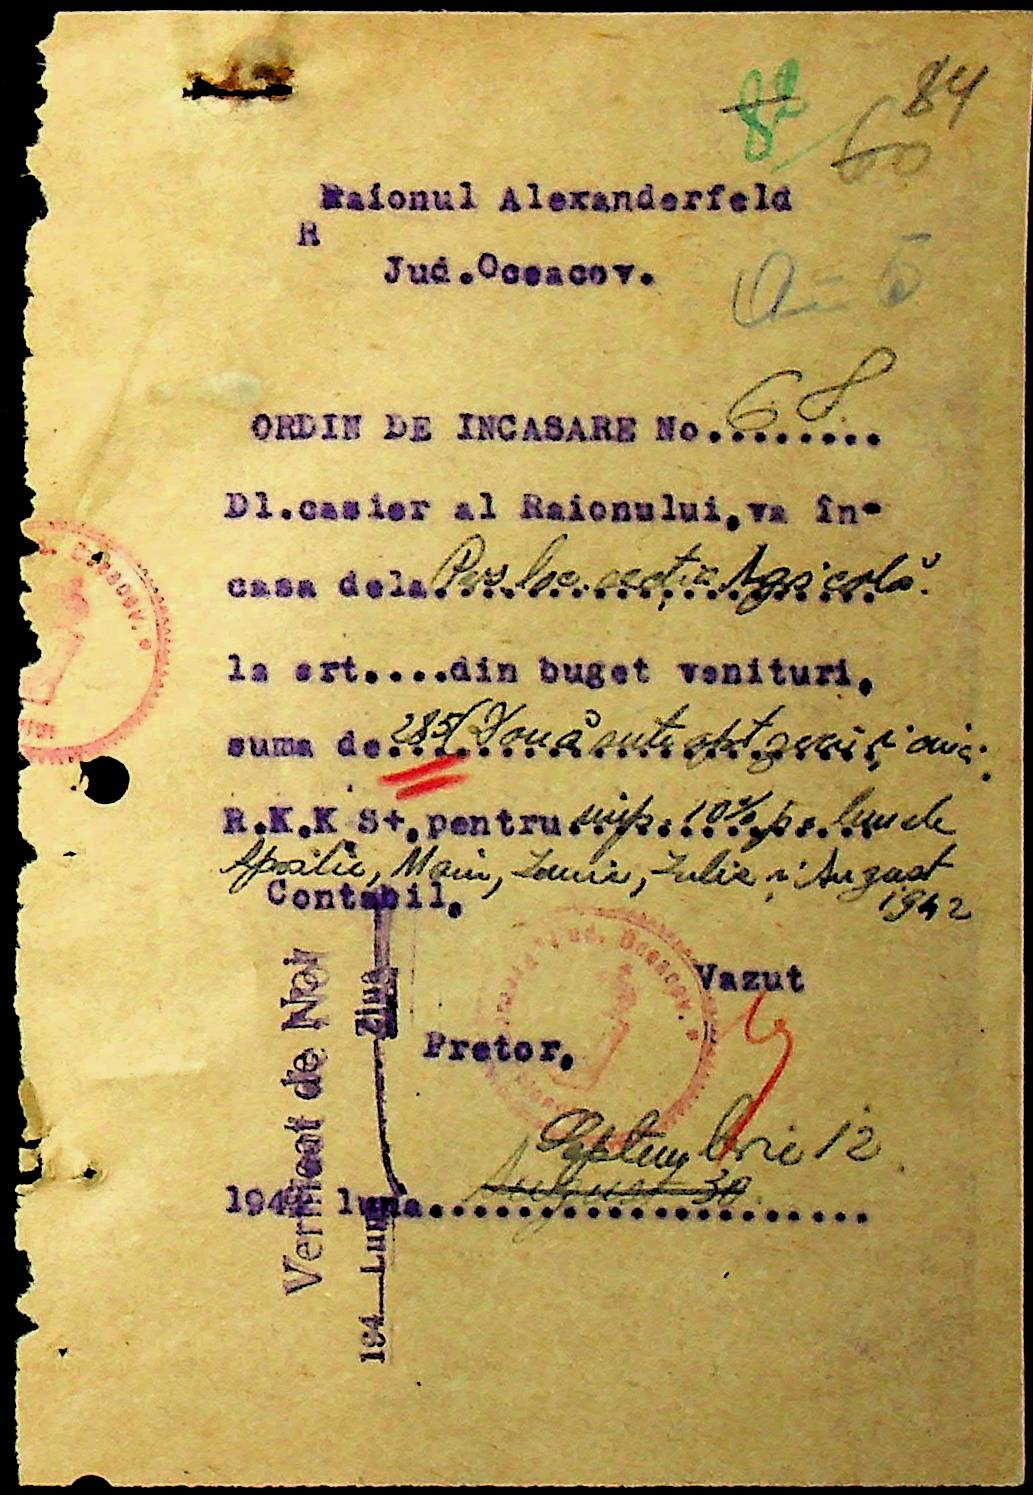 82 84
60
Raionul Alexanderfeld
R
Jud.Oceacov.
ORDIN DE INCASARE No........ 68
Dl.casier al Raionului,va în-
casa dela Pers loc. secția Agricolă.
la art....din buget venituri,
suma de 285 (Două sute opt zeci și cinci
R.K.K S+,pentru imp. 10% pe lunile
Aprilie, Main, Iunie, Iulie și August
1942
Contabil,
Vazut
Pretor,
Septembrie 12
194 luna August 30
Verificat de Noi
194 Luna Ziua